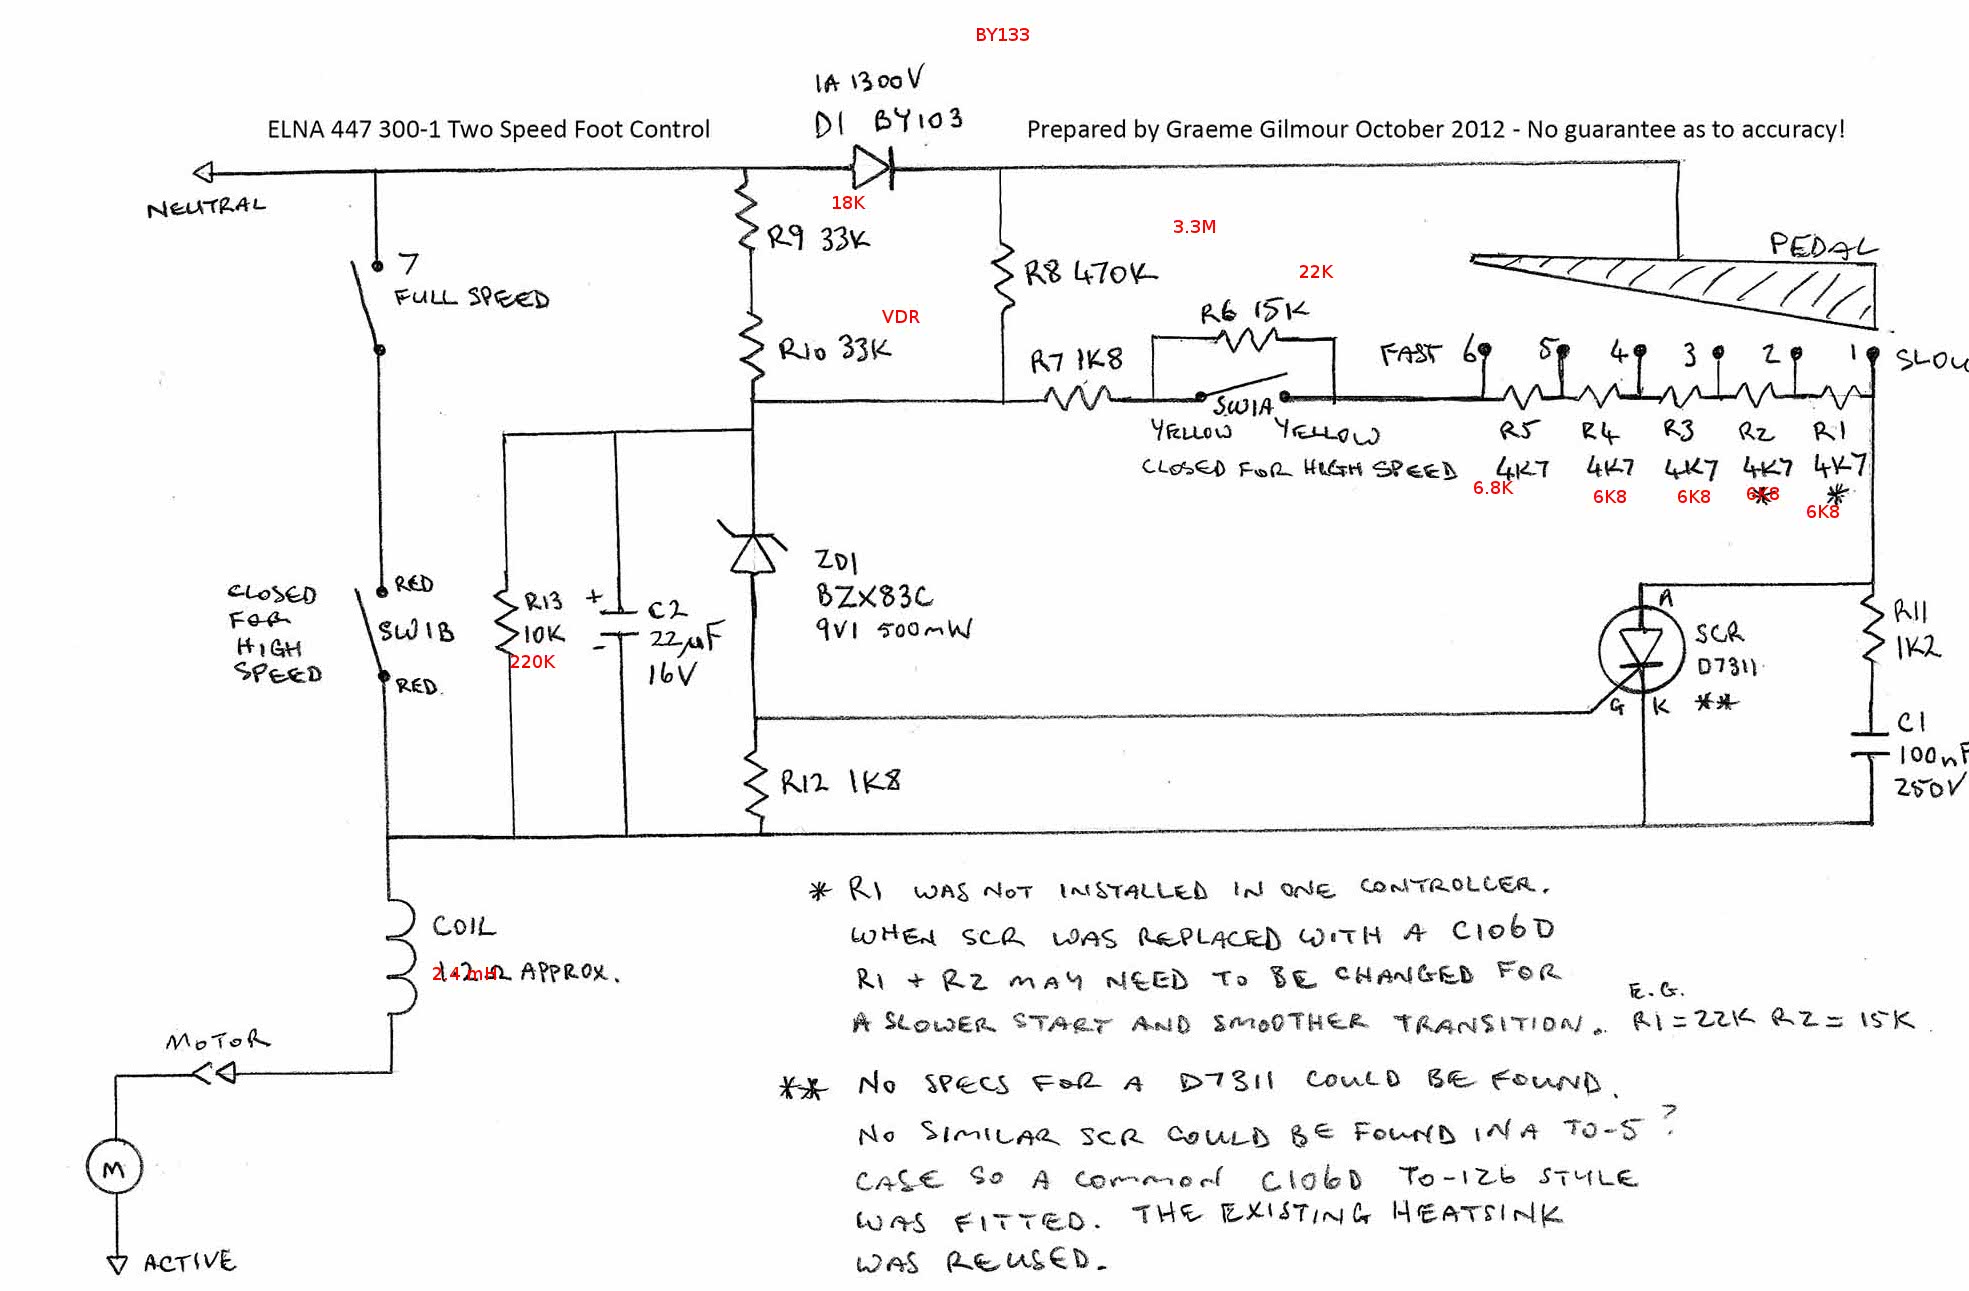 BY133
1A 1300V
D1 BY103
ELNA 447 300-1 Two Speed Foot Control
Prepared by Graeme Gilmour October 2012 - No guarantee as to accuracy!
NEUTRAL
18K
R9 33K
3.3M
PEDAL
7
FULL SPEED
R8 470K
22K
R6 15K
VDR
R10 33K
R7 1K8
FAST 6 5 4 3 2 1 SLOW
SW1A
YELLOW YELLOW
CLOSED FOR HIGH SPEED
R5 R4 R3 R2 R1
4K7 4K7 4K7 4K7 4K7
* *
6.8K 6K8 6K8 6K8 6K8
CLOSED
FOR
HIGH
SPEED
RED
SW1B
RED.
R13
10K
220K
+
-
C2
22µF
16V
ZD1
BZX83C
9V1 500mW
A
SCR
D7311
**
G K
R11
1K2
C1
100nF
250V
R12 1K8
COIL
1.2Ω APPROX.
2.4 mH
MOTOR
M
ACTIVE
* R1 WAS NOT INSTALLED IN ONE CONTROLLER.
WHEN SCR WAS REPLACED WITH A C106D
R1 + R2 MAY NEED TO BE CHANGED FOR
A SLOWER START AND SMOOTHER TRANSITION. E.G. R1=22K R2=15K
** NO SPECS FOR A D7311 COULD BE FOUND.
NO SIMILAR SCR COULD BE FOUND IN A TO-5?
CASE SO A COMMON C106D TO-126 STYLE
WAS FITTED. THE EXISTING HEATSINK
WAS REUSED.